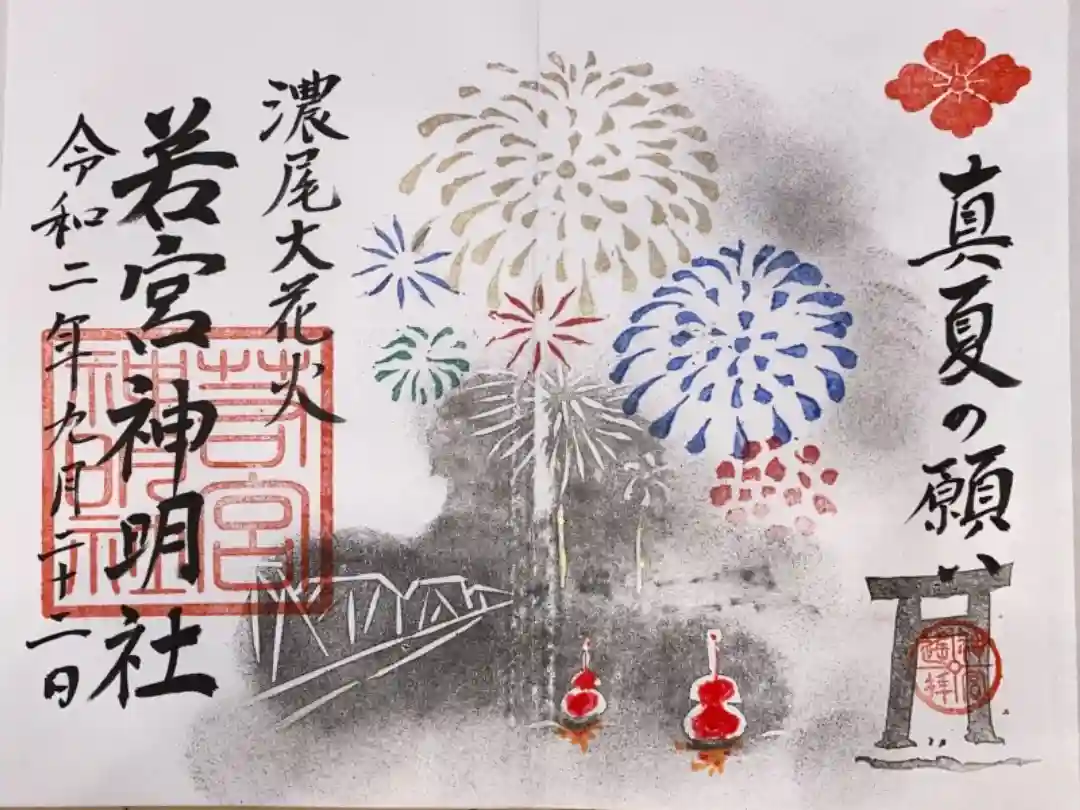 真夏の願い
濃尾大花火
若宮神明社
令和二年九月二十二日
若宮
神明社